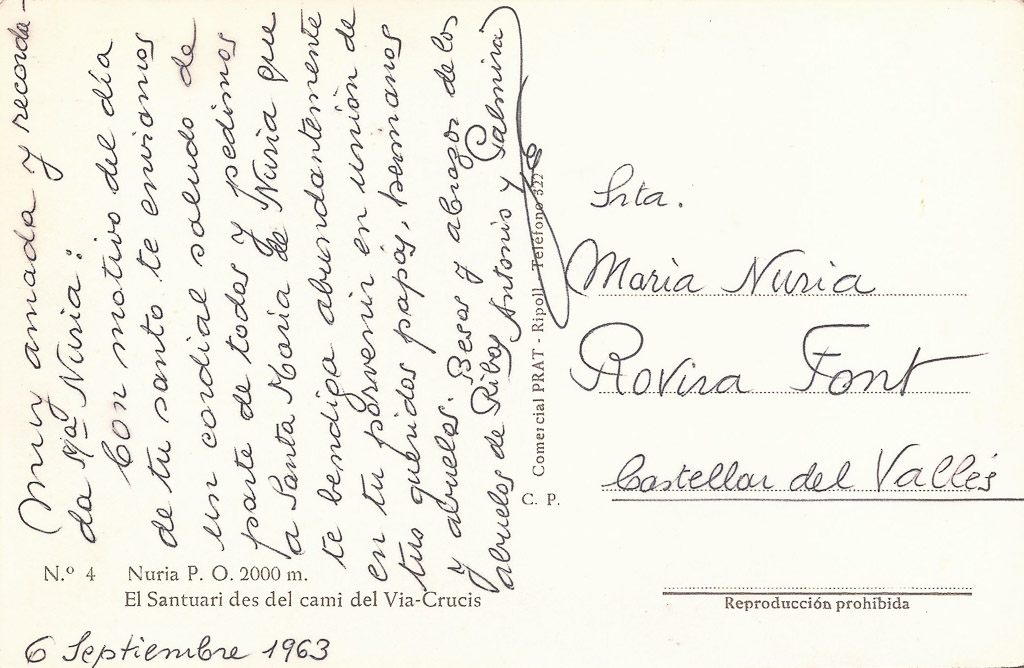 Muy amada y recorda-
da Mª Nuria:
Con motivo del día
de tu santo te enviamos
un cordial saludo de
parte de todos y pedimos
a Santa Maria de Nuria que
te bendiga abundantemente
en tu porvenir en unión de
tus queridos papás, hermanos
y abuelos. Besos y abrazos de los
abuelos de Ribas Antonio y Palmira
N.º 4 Nuria P. O. 2000 m.
El Santuari des del cami del Via-Crucis
6 Septiembre 1963
Comercial PRAT - Ripoll - Teléfono 322
C. P.
Srta.
Maria Nuria
Rovira Font
Castellar del Vallés
Reproducción prohibida